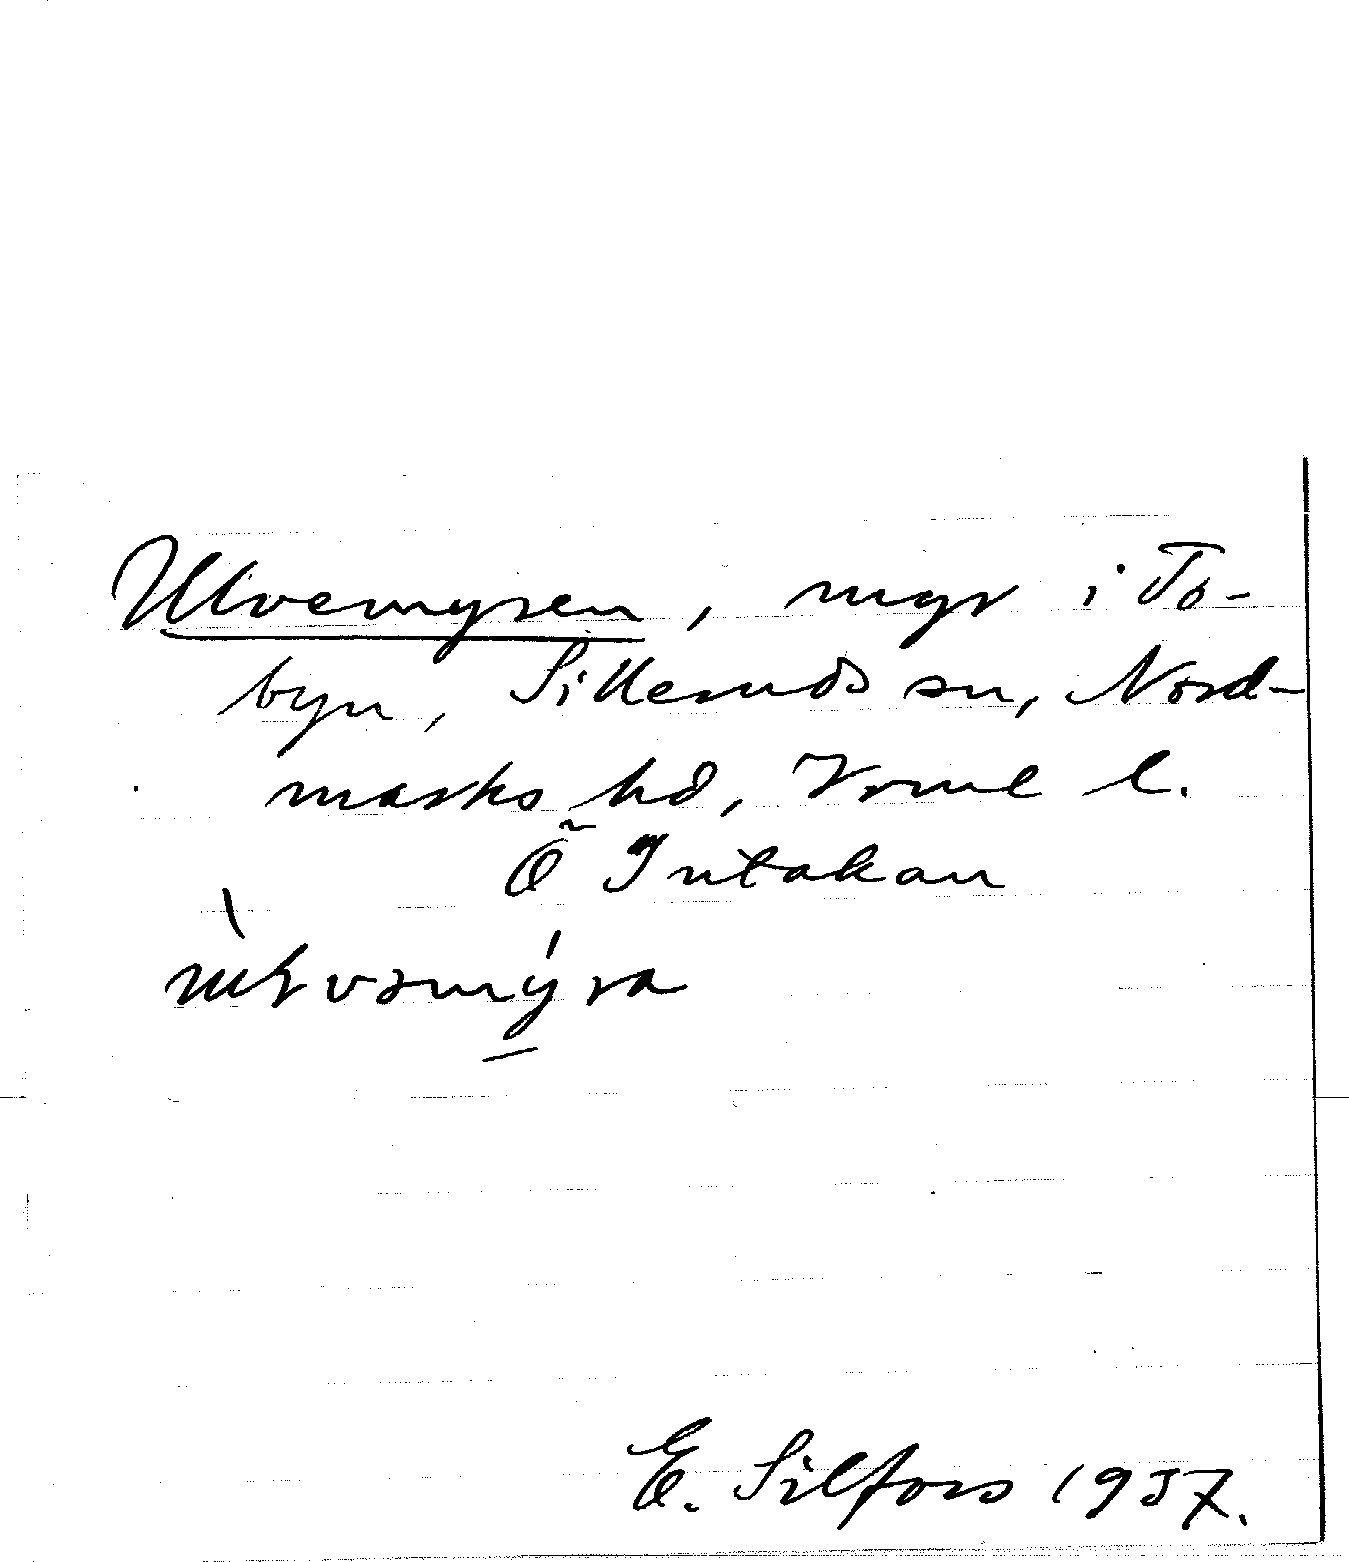 Ulvemyren, myr i To-
byn, Silleruds sn, Nord-
marks hd, Vrml l.
Õ Intakan
E. Silfors 1937.